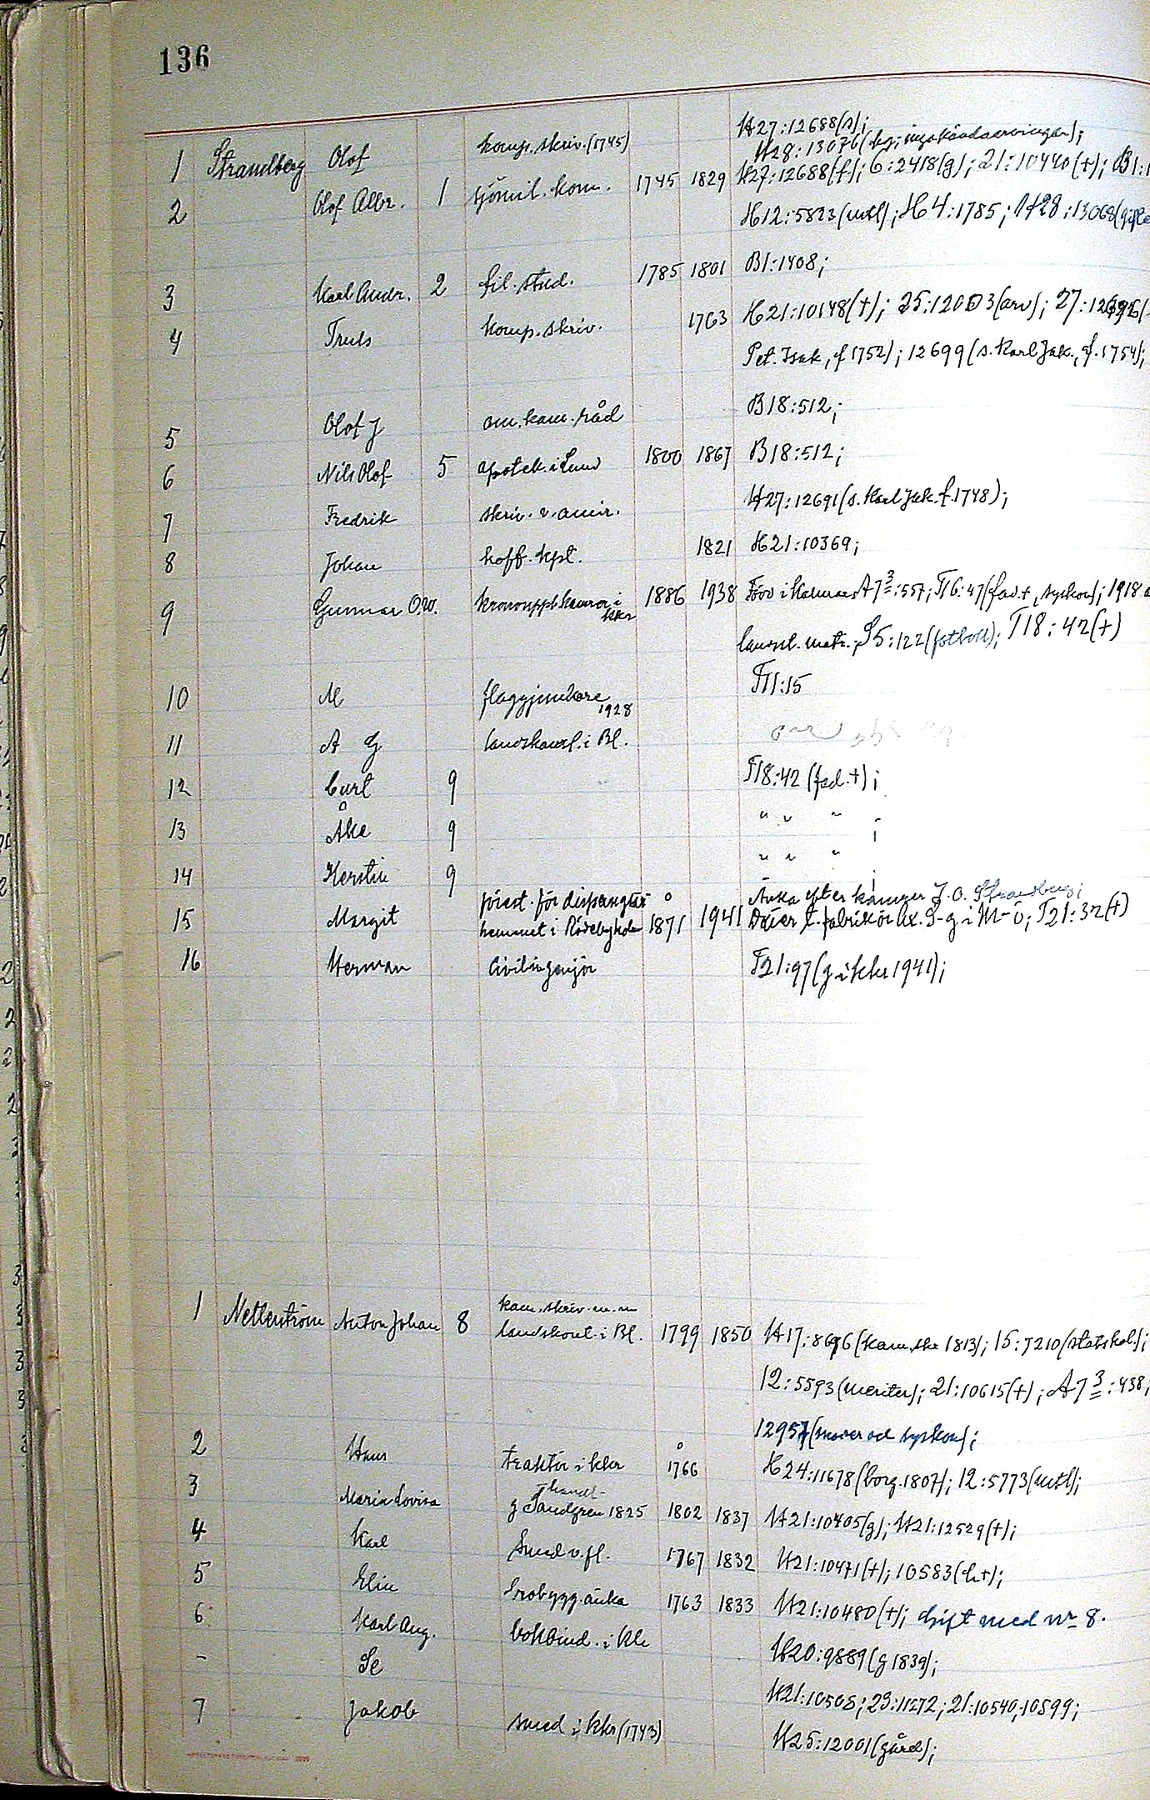 136
1 Strandberg Olof komp. skriv. (1745) H27:12688(s);
H28:13076(
2 Olof Albr. 1 sjömil. kom. 1745 1829 H27:12688(f); 6:2418(g); 21:10440(+); B1:1
H12:5823(utl); H4:1785; H28:13068(gifte
3 Karl Andr. 2 fil. stud. 1785 1801 B1:1408;
4 Truls komp. skriv. 1763 H21:10148(+); 25:12003(arv); 27:12695(
Pet. Isak, f 1752); 12699(s. Karl Jak., f. 1754);
5 Olof J am. kam. råd B18:512;
6 Nils Olof 5 apotek. i Lund 1800 1867 B18:512;
7 Fredrik skriv. v. amir. H27:12691(s. Karl Jak. f. 1748);
8 Johan koff. kpt. 1821 H21:10369;
9 Gunnar O.W. kronouppb. kamrer i kkr 1886 1938 Förv i Kalmar A7 3:557; T16:47(fad. +, syskon); 1918
landst. matr.; S5:122(fotboll); T18:42(+)
10 M flaggjunkare 1928 T11:15
11 A G landskansl. i Bl.
12 Curt 9 T18:42 (fad. +);
13 Åke 9 " " " ;
14 Kerstin 9 " " " ;
15 Margit förest. för dispensär
hemmet i Rödebyholm 1871 1941 Änka efter kamrer J.O. Strandberg;
Dotter t. fabrikör Ax. S-g i M-ö; T21:32(+)
16 Herman Civilingenjör T21:97(g i kkr 1941);
1 Netterström Anton Johan 8 kam. skriv. m. m
landskont. i Bl. 1799 1850 H17:8696(kam. skr 1813); 15:7210(statskal);
12:5593(meriter); 21:10615(+); A7 3:438;
12957(moder och syskon);
2 Hans traktör i kkr 1766 H24:11678(borg. 1807); 12:5773(utl);
3 Maria Lovisa g handl. Sandgren 1825 1802 1837 H21:10405(g); H21:12529(+);
4 Karl Smed v. fl. 1767 1832 H21:10471(+); 10583(d+);
5 Elin brobygg. änka 1763 1833 H21:10480(+); gift med nr 8.
6 Karl Aug. bokbind. i kkr H20:9889(g 1839);
- Se H21:10508; 23:11272; 21:10540, 10599;
7 Jakob smed i kkr (1743) H25:12001(gård);